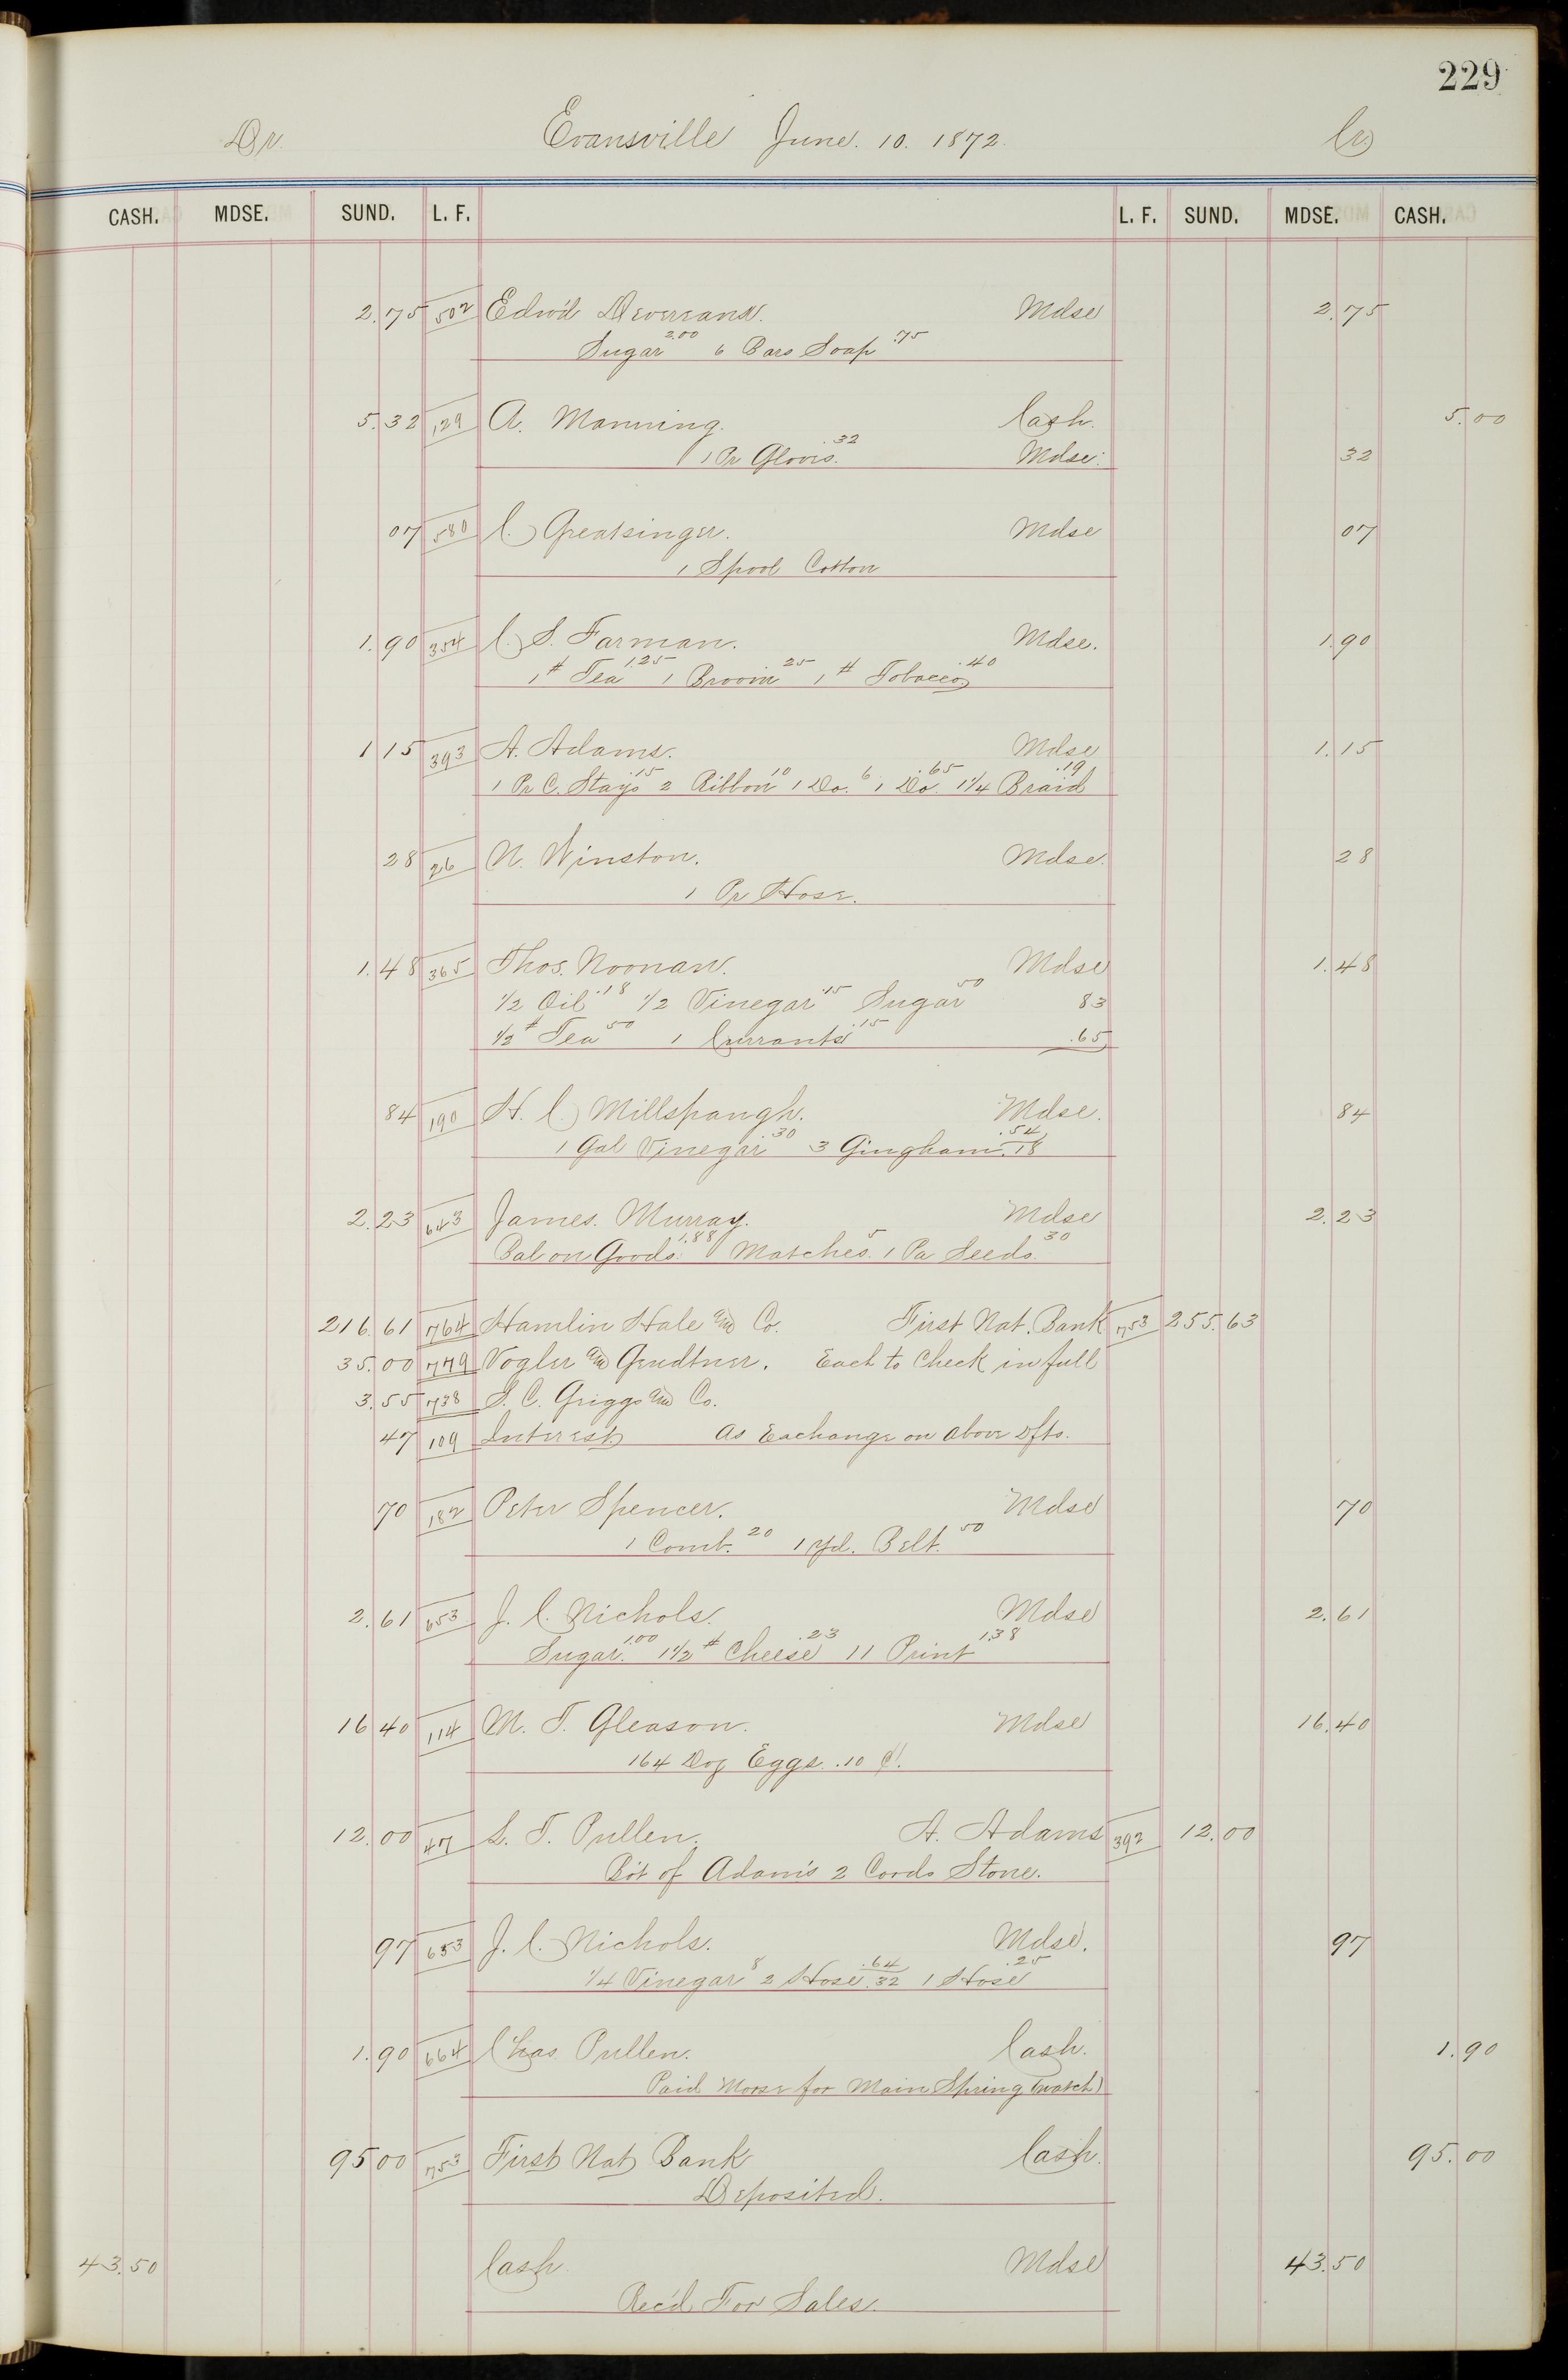 229
Dr. Evansville June. 10. 1872. Cr.
CASH. MDSE. SUND. L. F. L. F. SUND. MDSE. CASH.
2.75 502 Edwd Devereaux. Mdse 2.75
Sugar 2.00 6 Bars Soap .75
5.32 129 A. Manning. Cash. 5.00
1 Pr Gloves. .32 Mdse. 32
07 580 C. Greatsinger. Mdse 07
1 Spool Cotton
1.90 354 C. S. Farman. Mdse. 1.90
1 # Tea 1.25 1 Broom 25 1 # Tobacco .40
1 15 393 A. Adams. Mdse 1.15
1 Pr C. Stays .15 2 Ribbon 10 1 Do. 6 1 Do .65 1 1/4 Braid .19
28 26 N. Winston. Mdse. 28
1 Pr Hose.
1.48 365 Thos. Noonan. Mdse 1.48
1/2 Oil .18 1/2 Vinegar .15 Sugar 50 83
1/2 # Tea 50 1 Currants .15 .65
84 190 H. C. Millspaugh. Mdse. 84
1 Gal Vinegar 30 3 Gingham .54 .18
2.23 643 James. Murray. Mdse 2.23
Bal on Goods. 1.88 Matches. 5 1 Pa Seeds. 30
216.61 764 Hamlin Hale and Co. First Nat. Bank 753 255.63
35.00 779 Vogler and Geudtner. Each to Check in full
3.55 738 S. C. Griggs and Co.
47 109 Interest As Exchange on above Dfts.
70 182 Peter Spencer. Mdse 70
1 Comb. 20 1 yd. Belt. 50
2.61 653 J. C. Nichols. Mdse 2.61
Sugar. 1.00 1 1/2 # Cheese .23 11 Print 1.38
16 40 114 M. T. Gleason. Mdse 16.40
164 Doz Eggs. .10 ¢.
12.00 47 L. T. Pullen. A. Adams 392 12.00
Bot of Adams 2 Cords Stone.
97 653 J. C. Nichols. Mdse. 97
1/4 Vinegar 8 2 Hose .64 .32 1 Hose .25
1.90 664 Chas Pullen. Cash. 1.90
Paid Morse for Main Spring (watch)
95 00 753 First Nat Bank Cash. 95.00
Deposited.
43.50 Cash. Mdse 43.50
Rec'd For Sales.